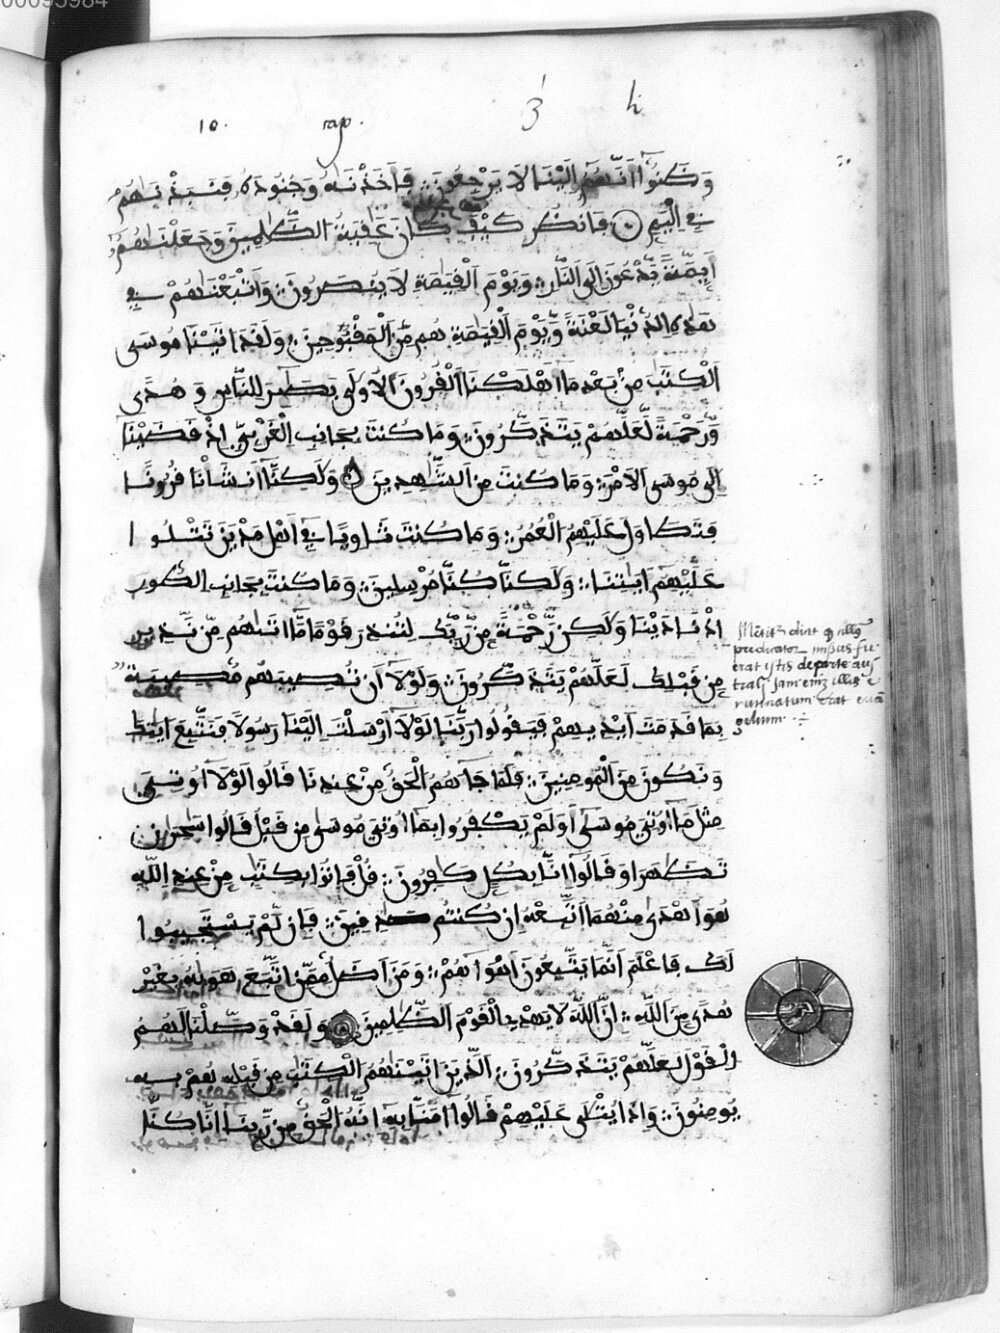 00095984
10. 3 h
وَظَنُّوٓا أَنَّهُمُۥٓ إِلَيْنَا لَا يَرْجِعُونَ فَأَخَذْنَٰهُ وَجُنُودَهُۥ فَنَبَذْنَٰهُمْ
فِي الْيَمِّ فَانظُرْ كَيْفَ كَانَ عَٰقِبَةُ الظَّٰلِمِينَ وَجَعَلْنَٰهُمُۥٓ
أَيِمَّةً يَدْعُونَ إِلَى النَّارِ وَيَوْمَ الْقِيَٰمَةِ لَا يُنصَرُونَ وَأَتْبَعْنَٰهُمْ فِي
هَٰذِهِ الدُّنْيَا لَعْنَةً وَيَوْمَ الْقِيَٰمَةِ هُم مِّنَ الْمَقْبُوحِينَ وَلَقَدَ اٰتَيْنَا مُوسَى
الْكِتَٰبَ مِنۢ بَعْدِ مَا أَهْلَكْنَا الْقُرُونَ الْأُولَىٰ بَصَآئِرَ لِلنَّاسِ وَهُدًى
وَرَحْمَةً لَّعَلَّهُمْ يَتَذَكَّرُونَ وَمَا كُنتَ بِجَانِبِ الْغَرْبِيِّ إِذْ قَضَيْنَا
إِلَىٰ مُوسَى الْأَمْرَ وَمَا كُنتَ مِنَ الشَّٰهِدِينَ وَلَٰكِنَّا أَنشَأْنَا قُرُونًا
فَتَطَاوَلَ عَلَيْهِمُ الْعُمُرُ وَمَا كُنتَ ثَاوِيًا فِي أَهْلِ مَدْيَنَ تَتْلُوا
عَلَيْهِمْ ءَايَٰتِنَا وَلَٰكِنَّا كُنَّا مُرْسِلِينَ وَمَا كُنتَ بِجَانِبِ الطُّورِ
إِذْ نَادَيْنَا وَلَٰكِن رَّحْمَةً مِّن رَّبِّكَ لِتُنذِرَ قَوْمًا مَّا أَتَىٰهُم مِّن نَّذِيرٍ
مِّن قَبْلِكَ لَعَلَّهُمْ يَتَذَكَّرُونَ وَلَوْلَا أَن تُصِيبَهُم مُّصِيبَةٌ
بِمَا قَدَّمَتَ اَيْدِيهِمْ فَيَقُولُوا رَبَّنَا لَوْلَا أَرْسَلْتَ إِلَيْنَا رَسُولًا فَنَتَّبِعَ ءَايَٰتِكَ
وَنَكُونَ مِنَ الْمُومِنِينَ فَلَمَّا جَآءَهُمُ الْحَقُّ مِنْ عِندِنَا قَالُوا لَوْلَا أُوتِيَ
مِثْلَ مَا أُوتِيَ مُوسَىٰ أَوَلَمْ يَكْفُرُوا بِمَا أُوتِيَ مُوسَىٰ مِن قَبْلُ قَالُوا سَٰحِرَٰنِ
تَظَٰهَرَا وَقَالُوا إِنَّا بِكُلٍّ كَافِرُونَ قُلْ فَاتُوا بِكِتَٰبٍ مِّنْ عِندِ اللَّهِ
هُوَ أَهْدَىٰ مِنْهُمَا أَتَّبِعْهُ إِن كُنتُمْ صَٰدِقِينَ فَإِن لَّمْ يَسْتَجِيبُوا
لَكَ فَاعْلَمَ اَنَّمَا يَتَّبِعُونَ أَهْوَآءَهُمْ وَمَنَ اَضَلُّ مِمَّنِ اتَّبَعَ هَوَىٰهُ بِغَيْرِ
هُدًى مِّنَ اللَّهِ إِنَّ اللَّهَ لَا يَهْدِي الْقَوْمَ الظَّٰلِمِينَ وَلَقَدْ وَصَّلْنَا لَهُمُ
الْقَوْلَ لَعَلَّهُمْ يَتَذَكَّرُونَ الَّذِينَ ءَاتَيْنَٰهُمُ الْكِتَٰبَ مِن قَبْلِهِ هُم بِهِ
يُومِنُونَ وَإِذَا يُتْلَىٰ عَلَيْهِمْ قَالُوا ءَامَنَّا بِهِ إِنَّهُ الْحَقُّ مِن رَّبِّنَا إِنَّا كُنَّا
predicator missus fu
erat istis
gelium